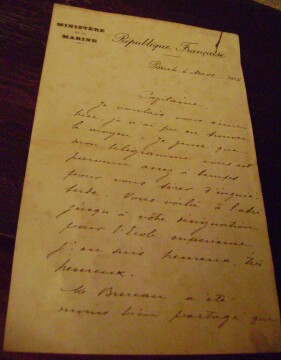 MINISTÈRE
DE LA
MARINE
République Française
Paris le 6 Août
Capitaine,
Je voulais vous
hier je n'ai pu en trouver
le moyen. Je pense que
mon télégramme vous est
parvenu assez à temps
pour vous tirer d'inquié
tude. Vous voilà à l'abri
jusqu'à votre désignation
pour l'Ecole supérieure
j'en suis heureux, très
heureux.
Mr Bureau a été
moins bien partagé que